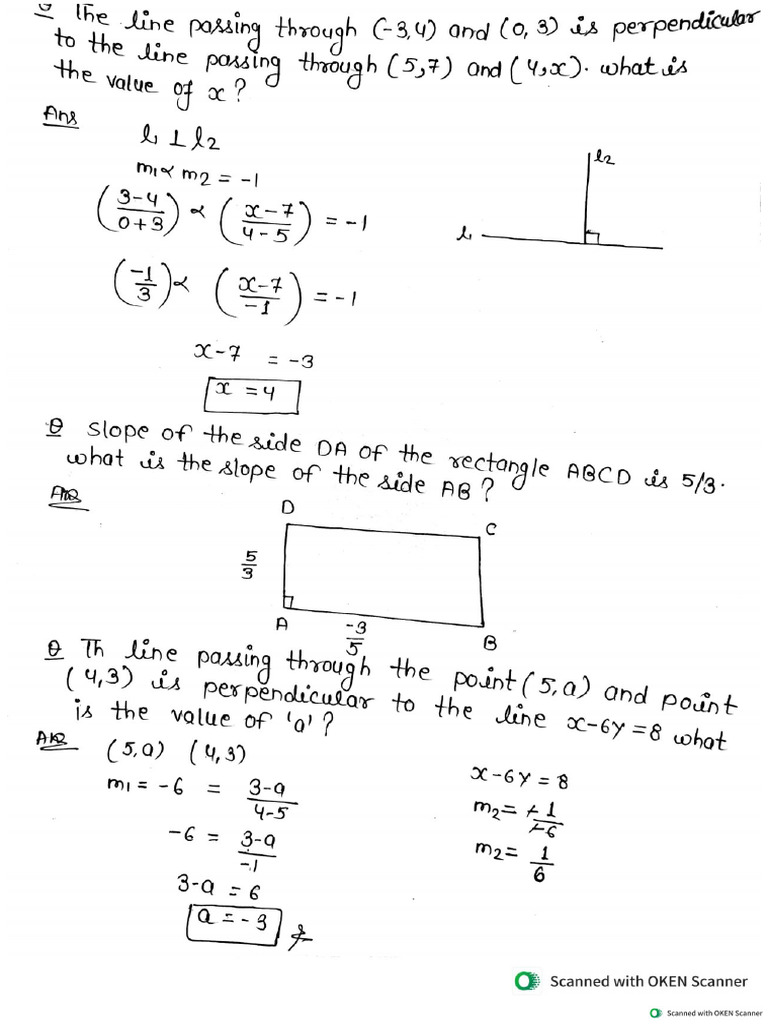 Q The line passing through (-3,4) and (0, 3) is perpendicular
to the line passing through (5,7) and (4,x). what is
the value of x?
Ans
l1 ⊥ l2
m1 × m2 = -1
(3-4/0+3) × (x-7/4-5) = -1
(-1/3) × (x-7/-1) = -1
x-7 = -3
x = 4
l2
l1
Q Slope of the side DA of the rectangle ABCD is 5/3.
what is the slope of the side AB?
Ans
D
C
5/3
A
-3/5
B
Q Th line passing through the point (5,a) and point
(4,3) is perpendicular to the line x-6y=8 what
is the value of 'a'?
Ans
(5,a) (4,3)
m1 = -6 = 3-a/4-5
-6 = 3-a/-1
3-a = 6
a = -3
x-6y=8
m2= +1/-6
m2= 1/6
Scanned with OKEN Scanner
Scanned with OKEN Scanner